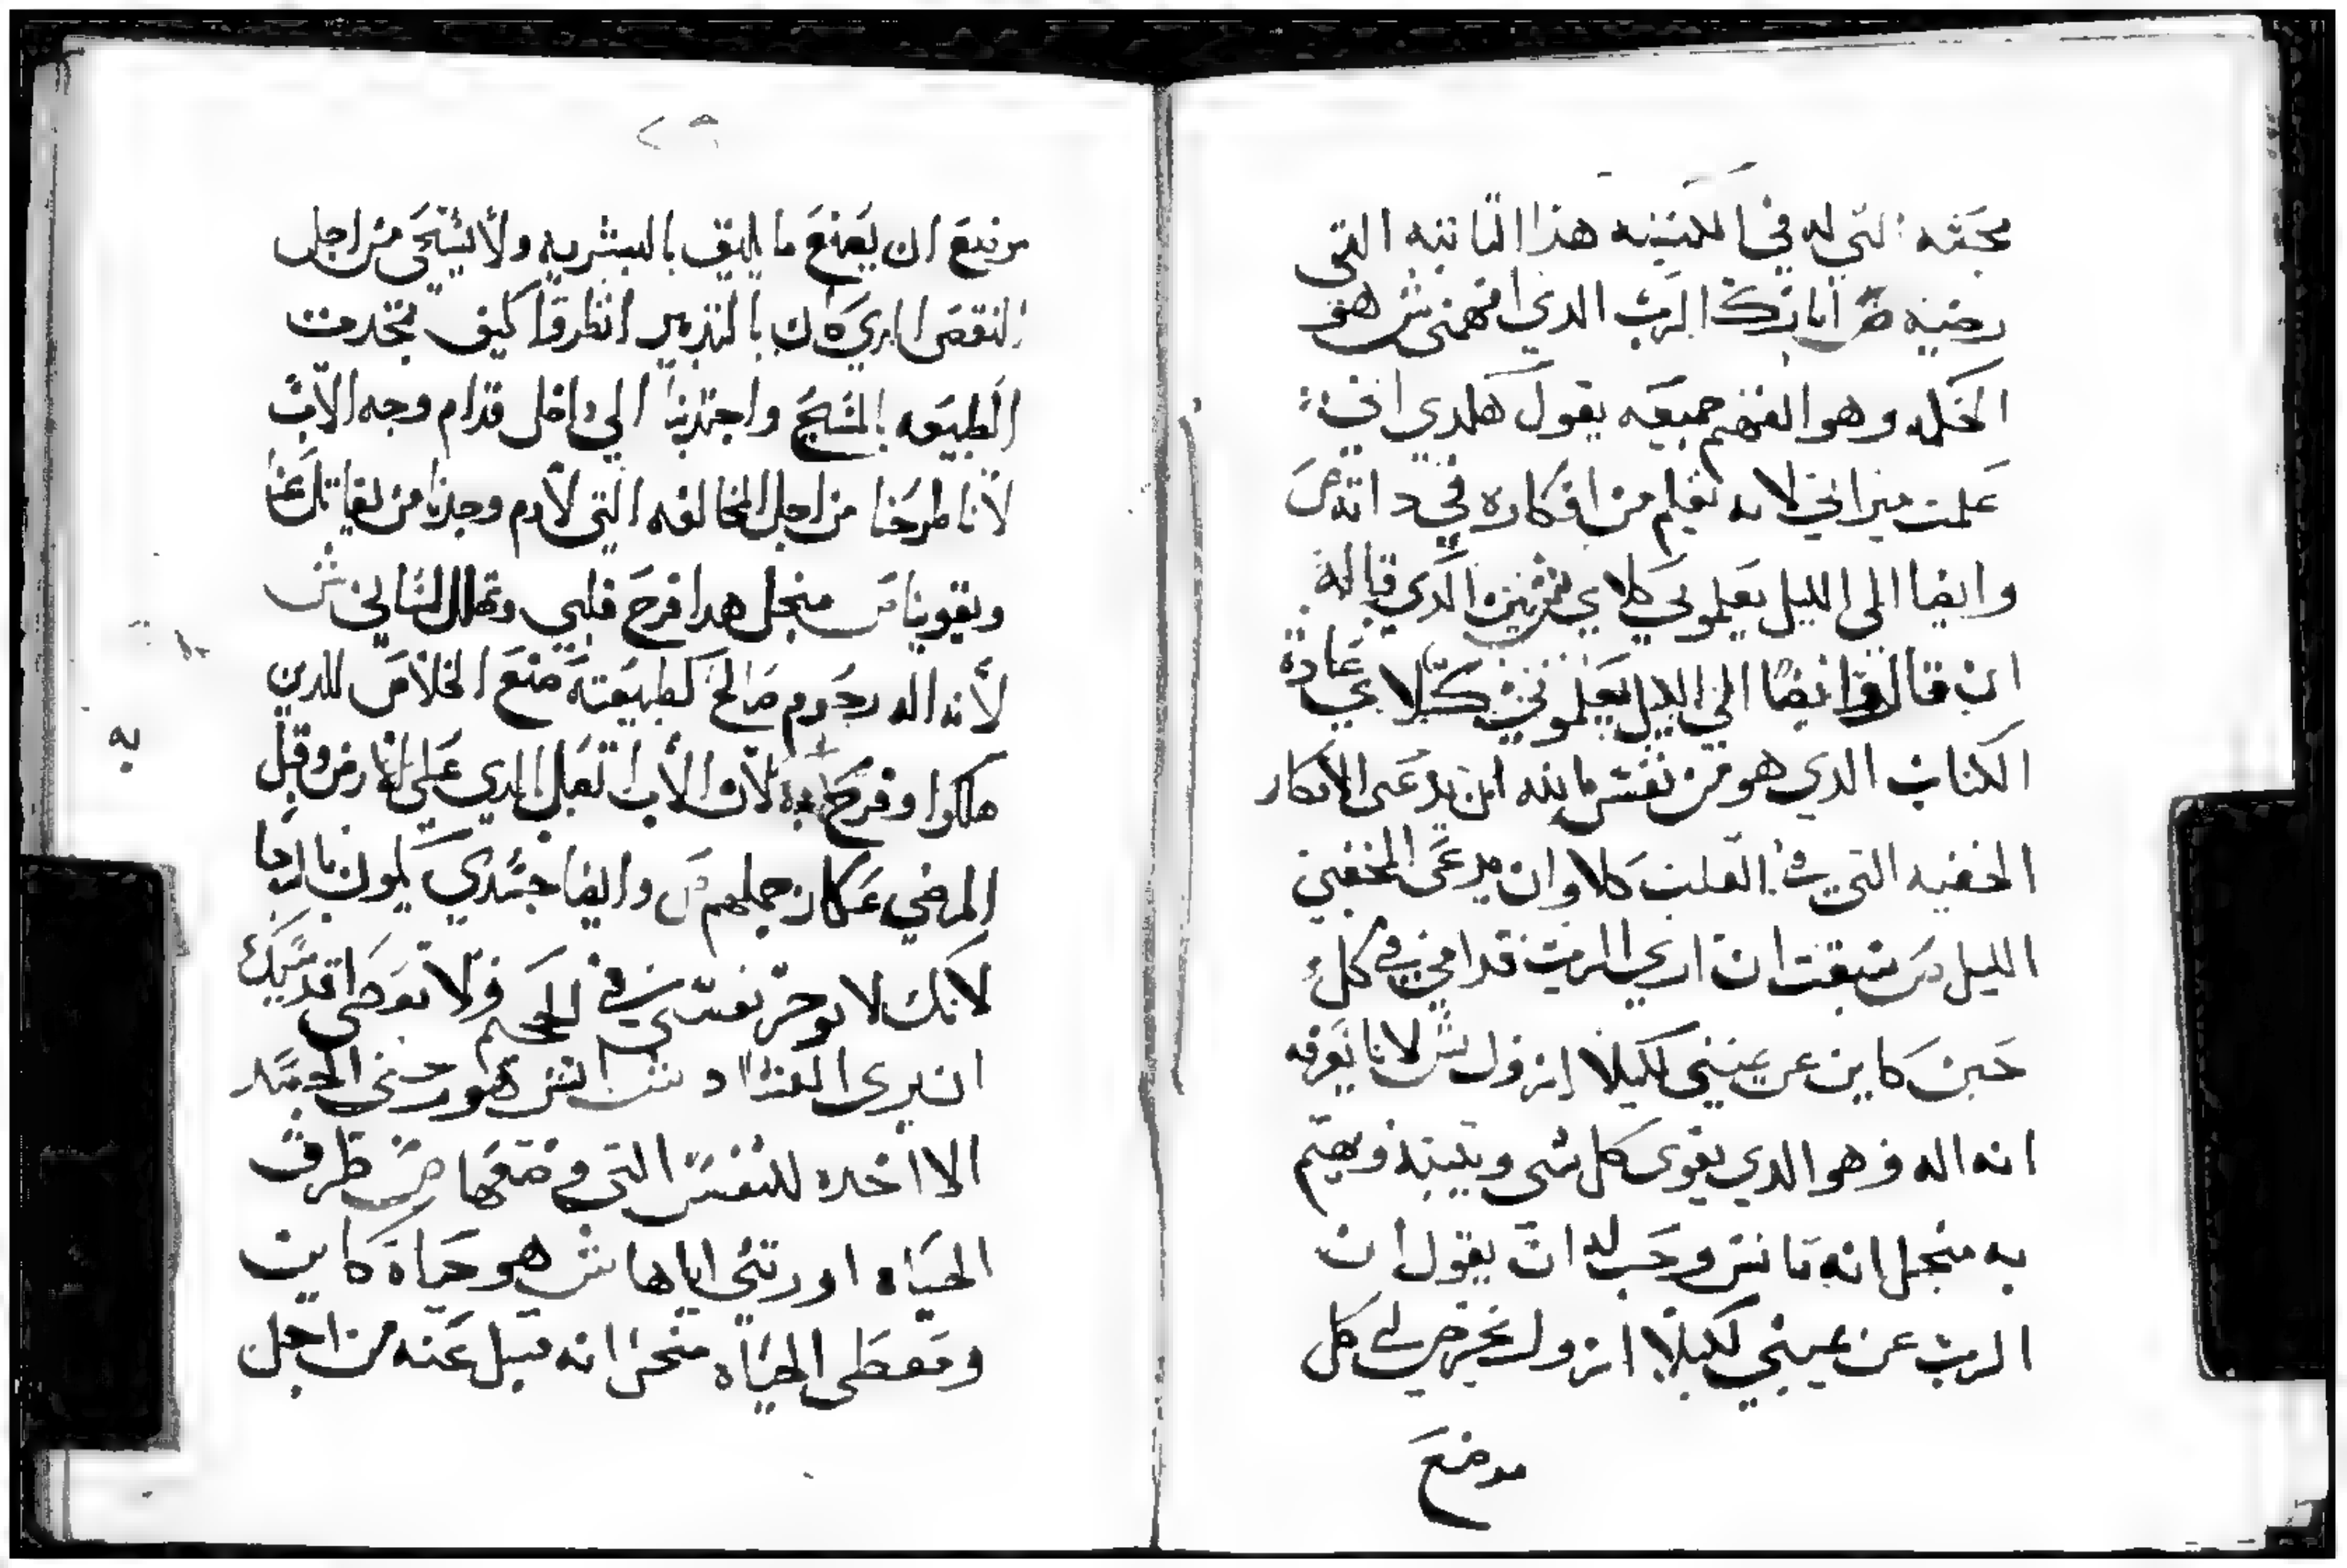 محبته التي له في الكنيسه هذا الثانيه التي
رضيه ص انا ابارك الرب الدي افهمني ش هو
الحكمه وهو الفهم جميعه يقول هلدي اني
علمت ميراثي لانه تعلم من افكاره في داته ص
وايضا الى الليل يعلموني كلاي ش الدي قاله
ان قالوا ايضا الى الليل يعلموني كلاي عادة
الكتاب الدي هو من نفس ما لله ان يدعى الافكار
الخفيه التي في القلب كلا وان يدعى المخفيي
الليل ص سبقت ان اري الرب قدامي في كل
حين كاين عن يميني لكيلا ازول ش لانا نعرفه
انه اله وهو الدي يقوى كل شى ويثبته ويهتم
به منجل انه تانس وجب له ان يقول ان
الرب عن يميني لكيلا ازول بحرص لي كل
موضع
٢٩
موضع ان يصنع ما يليق بالبشريه ولا يستحي من اجل
النقص الدي كان بالتدبير انظروا كيف تجددت
الطبيعه بالمسيح واجتدبنا الى داخل قدام وجه الاب
لانا طرحنا من اجل المخالفه التي لادم وجدنا من يقاتل عنا
ويقوينا ص منجل هدا فرح قلبي وتهلل لساني ش
لانه اله رحوم صالح كطبيعته صنع الخلاص للدين
هلكوا وفرح لان الاب تقبل الدي على الارض وقبل
المرضي عكان جملهم ص وايضا جسدي يكون بالرجا
لانك لا توخر نفسي في الجحيم ولا تعطى قديسك
ان يرى الفساد ش اليس هو رجى الجسد
الا اخده للنفس التي وضعها من طرف
الحياه اورتني اياها ش هو حياة كاين
ومعطى الحياه منحن انه قبل عنه من اجل
به